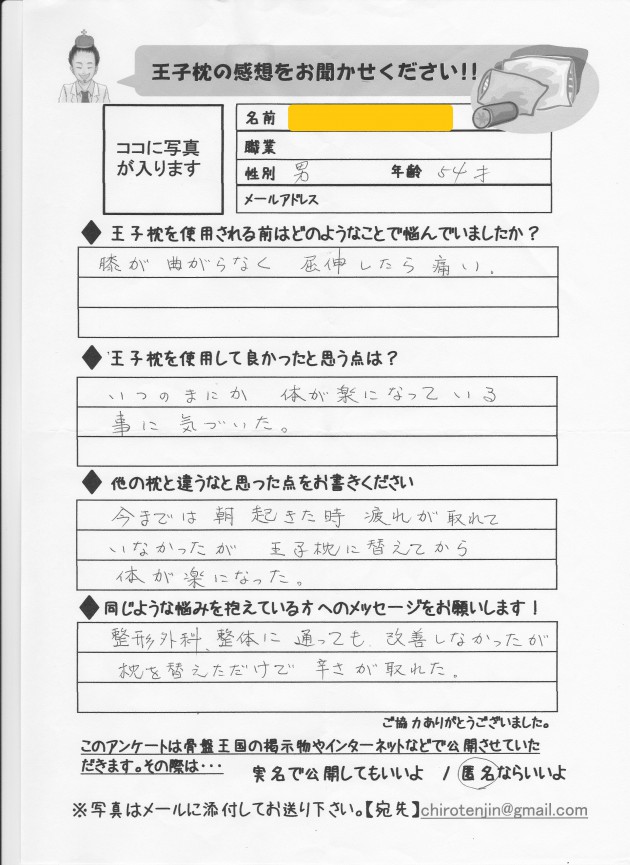 王子枕の感想をお聞かせください!!
ココに写真
が入ります
名前
職業
性別 男 年齢 54才
メールアドレス
◆王子枕を使用される前はどのようなことで悩んでいましたか?
膝が曲がらなく 屈伸したら痛い。
◆王子枕を使用して良かったと思う点は?
いつのまにか 体が楽になっている
事に気づいた。
◆他の枕と違うなと思った点をお書きください
今までは朝起きた時疲れが取れて
いなかったが 王子枕に替えてから
体が楽になった。
◆同じような悩みを抱えている方へのメッセージをお願いします!
整形外科、整体に通っても、改善しなかったが
枕を替えただけで 辛さが取れた。
ご協力ありがとうございました。
このアンケートは骨盤王国の掲示物やインターネットなどで公開させていた
だきます。その際は・・・ 実名で公開してもいいよ / 匿名ならいいよ
※写真はメールに添付してお送り下さい。【宛先】chirotenjin@gmail.com